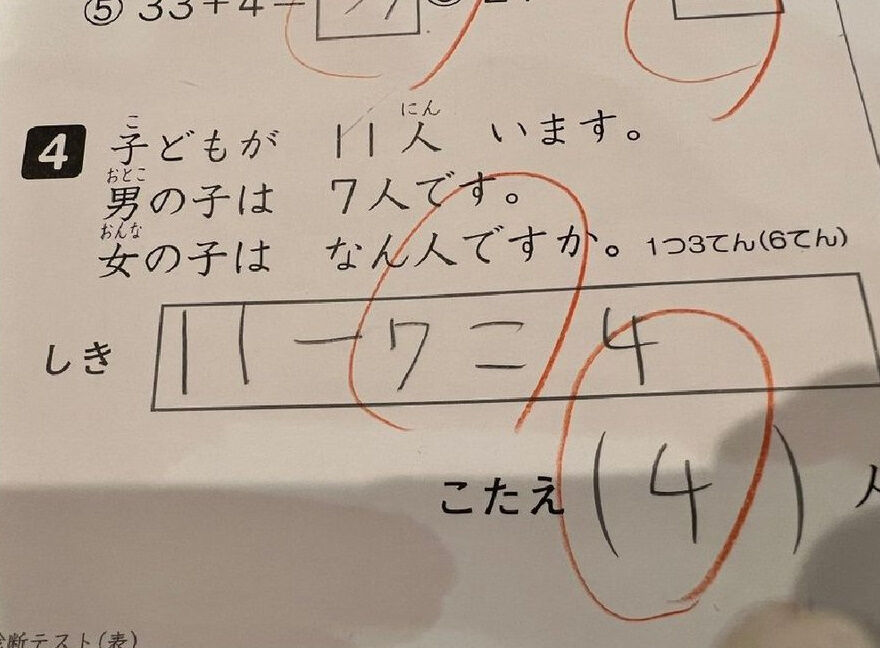 ⑤ 33+4=
4 子どもが 11人 います。
男の子は 7人です。
女の子は なん人ですか。 1つ3てん(6てん)
しき 11-7=4
こたえ (4)人
断テスト(表)